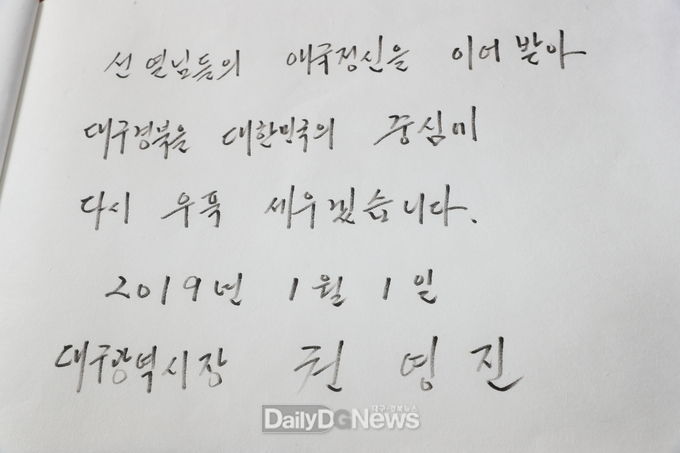 선열님들의 애국정신을 이어받아
대구경북을 대한민국의 중심에
다시 우뚝 세우겠습니다.
2019년 1월 1일
대구광역시장 권영진
대구·경북뉴스
DailyDGNews